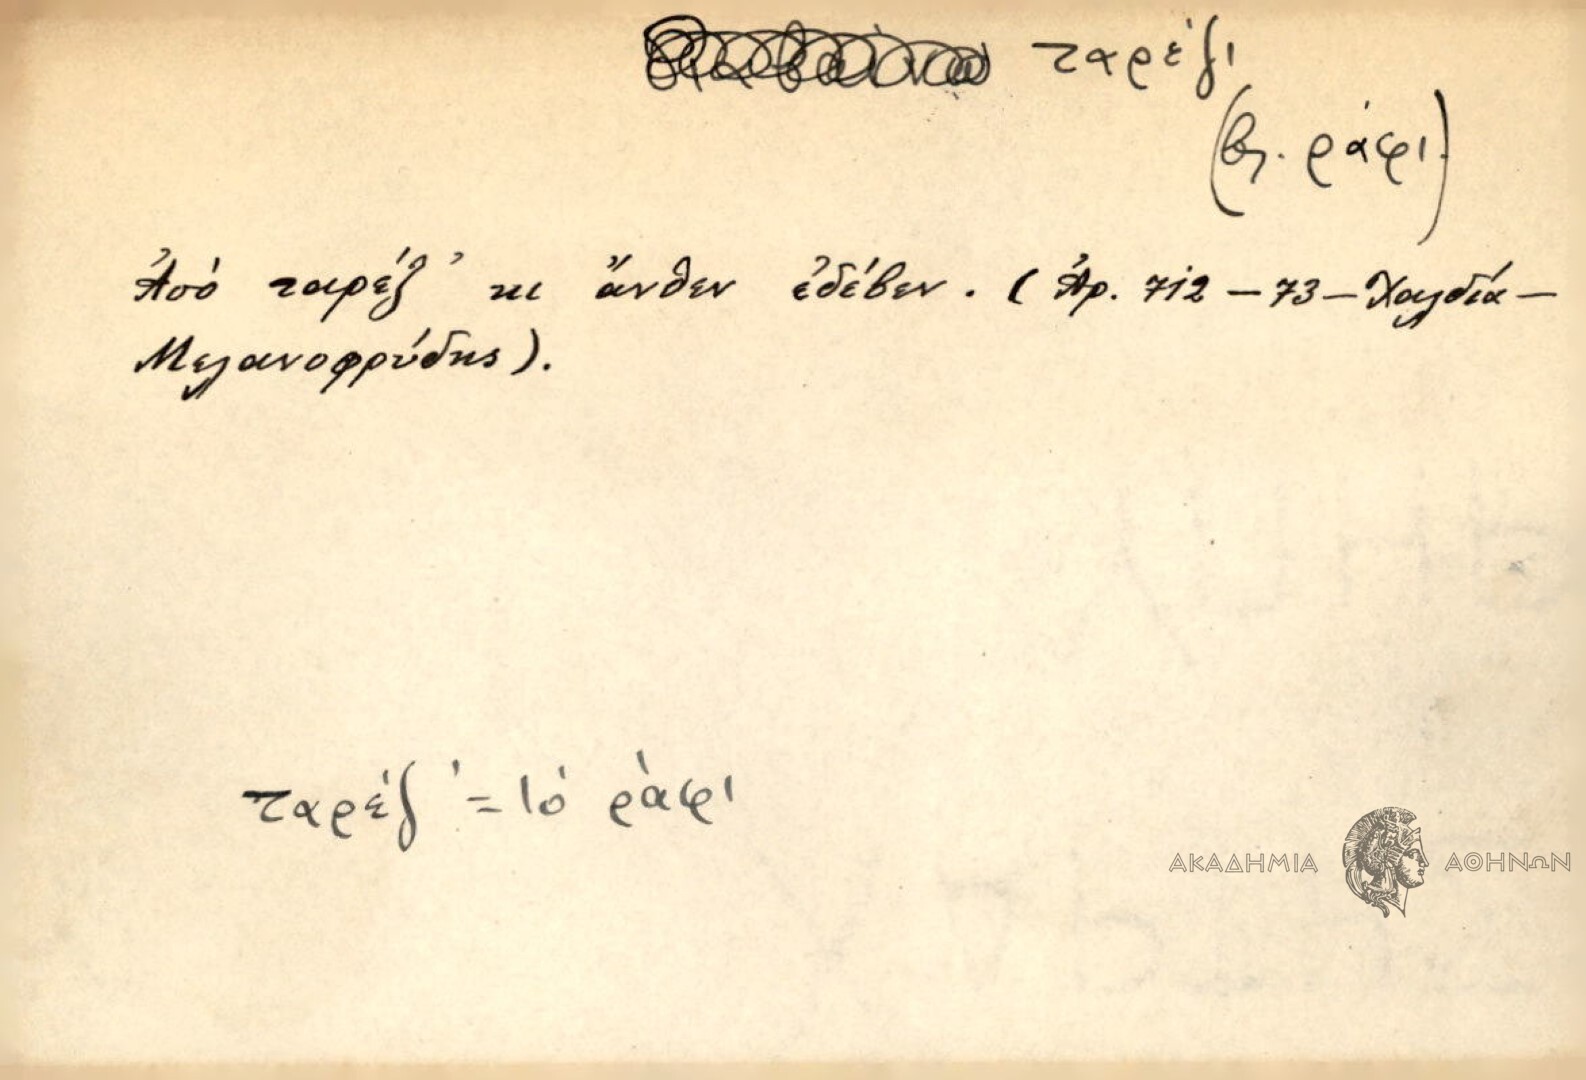 ταρέζι
(βλ. ράφι)
Ἀπό ταρέζ' κι ἄνθεν ἐδέβεν. (Ἀρ. 712 – 73 – Χαλδία –
Μελανοφρύδης).
ταρέζ' = τό ράφι
ΑΚΑΔΗΜΙΑ ΑΘΗΝΩΝ